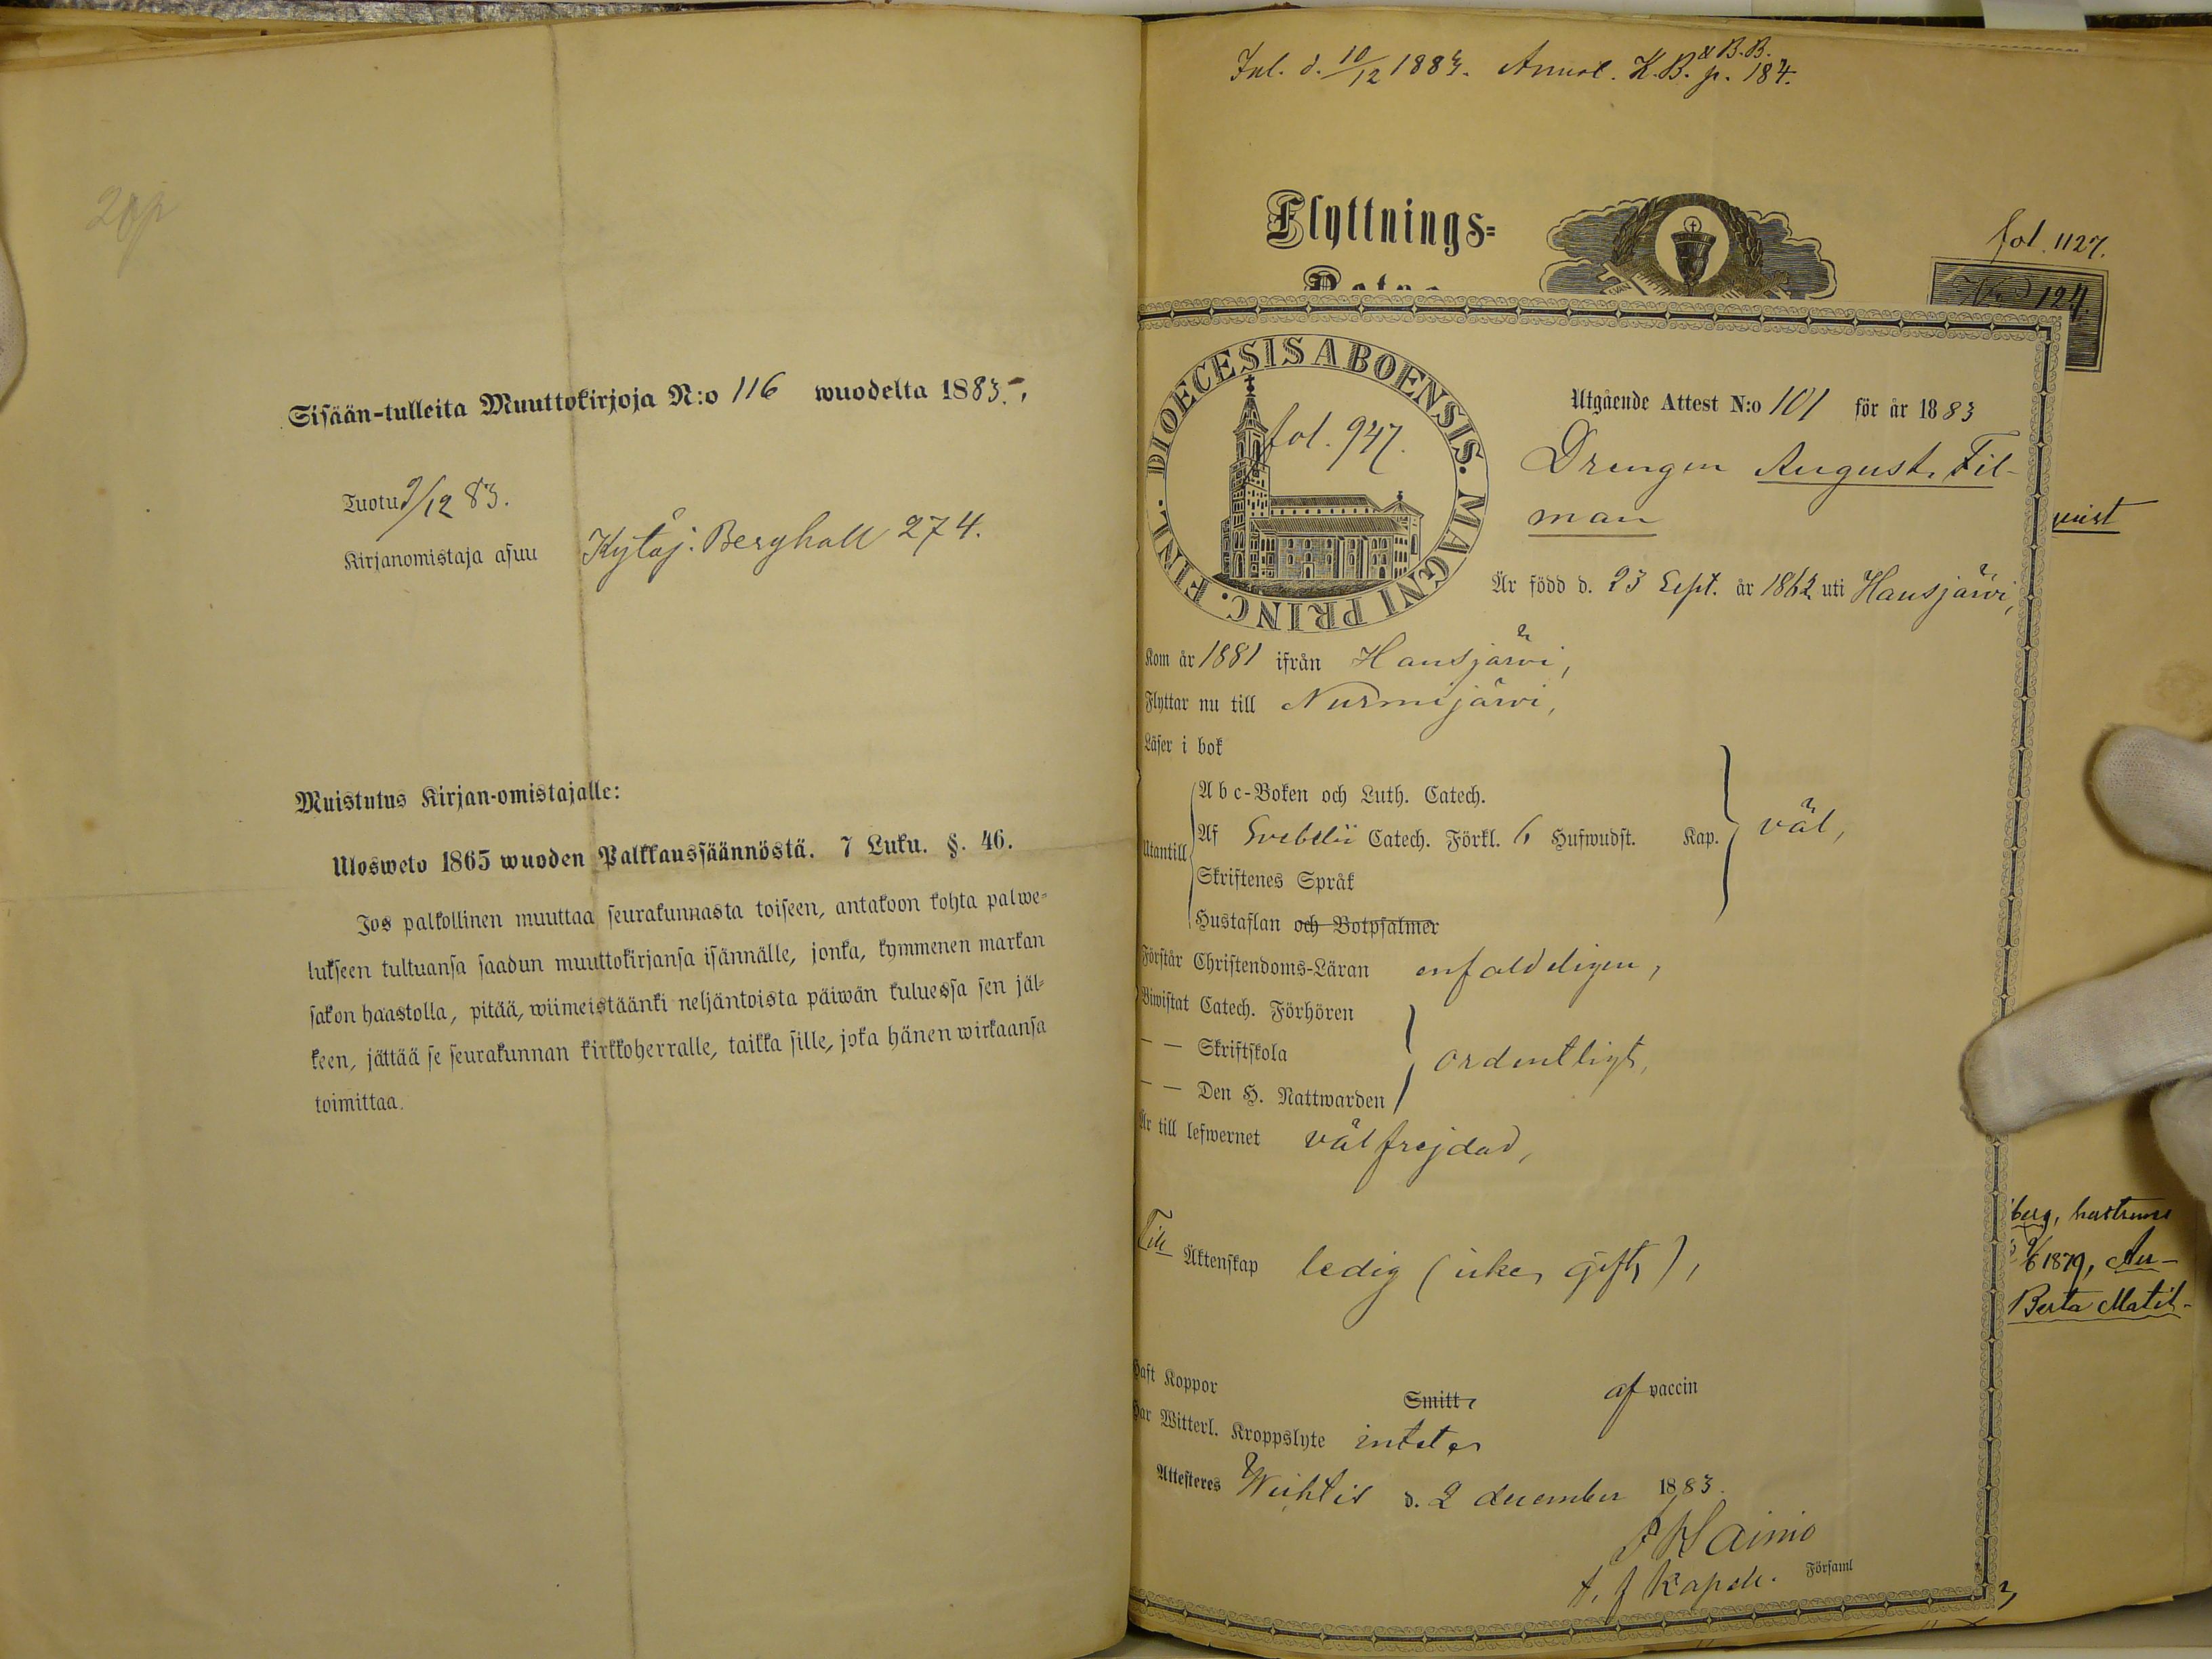 2pp
Sisään-tulleita Muuttokirjoja N:o 116 wuodelta 1883.
Tuotu 9/12 83.
Kirjanomistaja asuu Kytäj. Berghall 274.
Muistutus Kirjan-omistajalle:
Ulosweto 1865 wuoden Palkkaussäännöstä. 7 Luku. §. 46.
Jos palkollinen muuttaa seurakunnasta toiseen, antakoon kohta palwe-
lukseen tultuansa saadun muuttokirjansa isännälle, jonka, kymmenen markan
sakon haastolla, pitää, wiimeistäänki neljäntoista päiwän kuluessa sen jäl-
keen, jättää se seurakunnan kirkkoherralle, taikka sille, joka hänen wirkaansa
toimittaa.
Inl. d. 10/12 1883. Annot. K.B. & B.B. p. 184.
Flyttnings-
fol. 1127.
No 124.
DIOECESIS ABOENSIS. MAGNI PRINC. FINL.
fol. 947.
Utgående Attest N:o 101 för år 1883
Drengen August Fil-
man
qvist
Är född d. 23 Sept. år 1862 uti Hausjärvi,
Kom år 1881 ifrån Hausjärvi,
Flyttar nu till Nurmijärvi,
Läser i bok
Utantill
Abc-Boken och Luth. Catech.
Af Svebelii Catech. Förkl. 6 Hufwudst. Kap. väl,
Skriftenes Språk
Hustaflan och Botpsalmer
Förstår Christendoms-Läran enfaldeligen,
Biwistat Catech. Förhören
— — Skriftskola ordentligt,
— — Den H. Nattwarden
Är till lefwernet välfrejdad,
berg, hustruns
6 1879, Au-
Berta Matil-
Till Äktenskap ledig (icke gift),
Haft Koppor Smitt. af vaccin
Har Witterl. Kroppslyte intet
Attesteres Wichtis d. 2 december 1883.
Haimo
t. f. Kapell. Församl